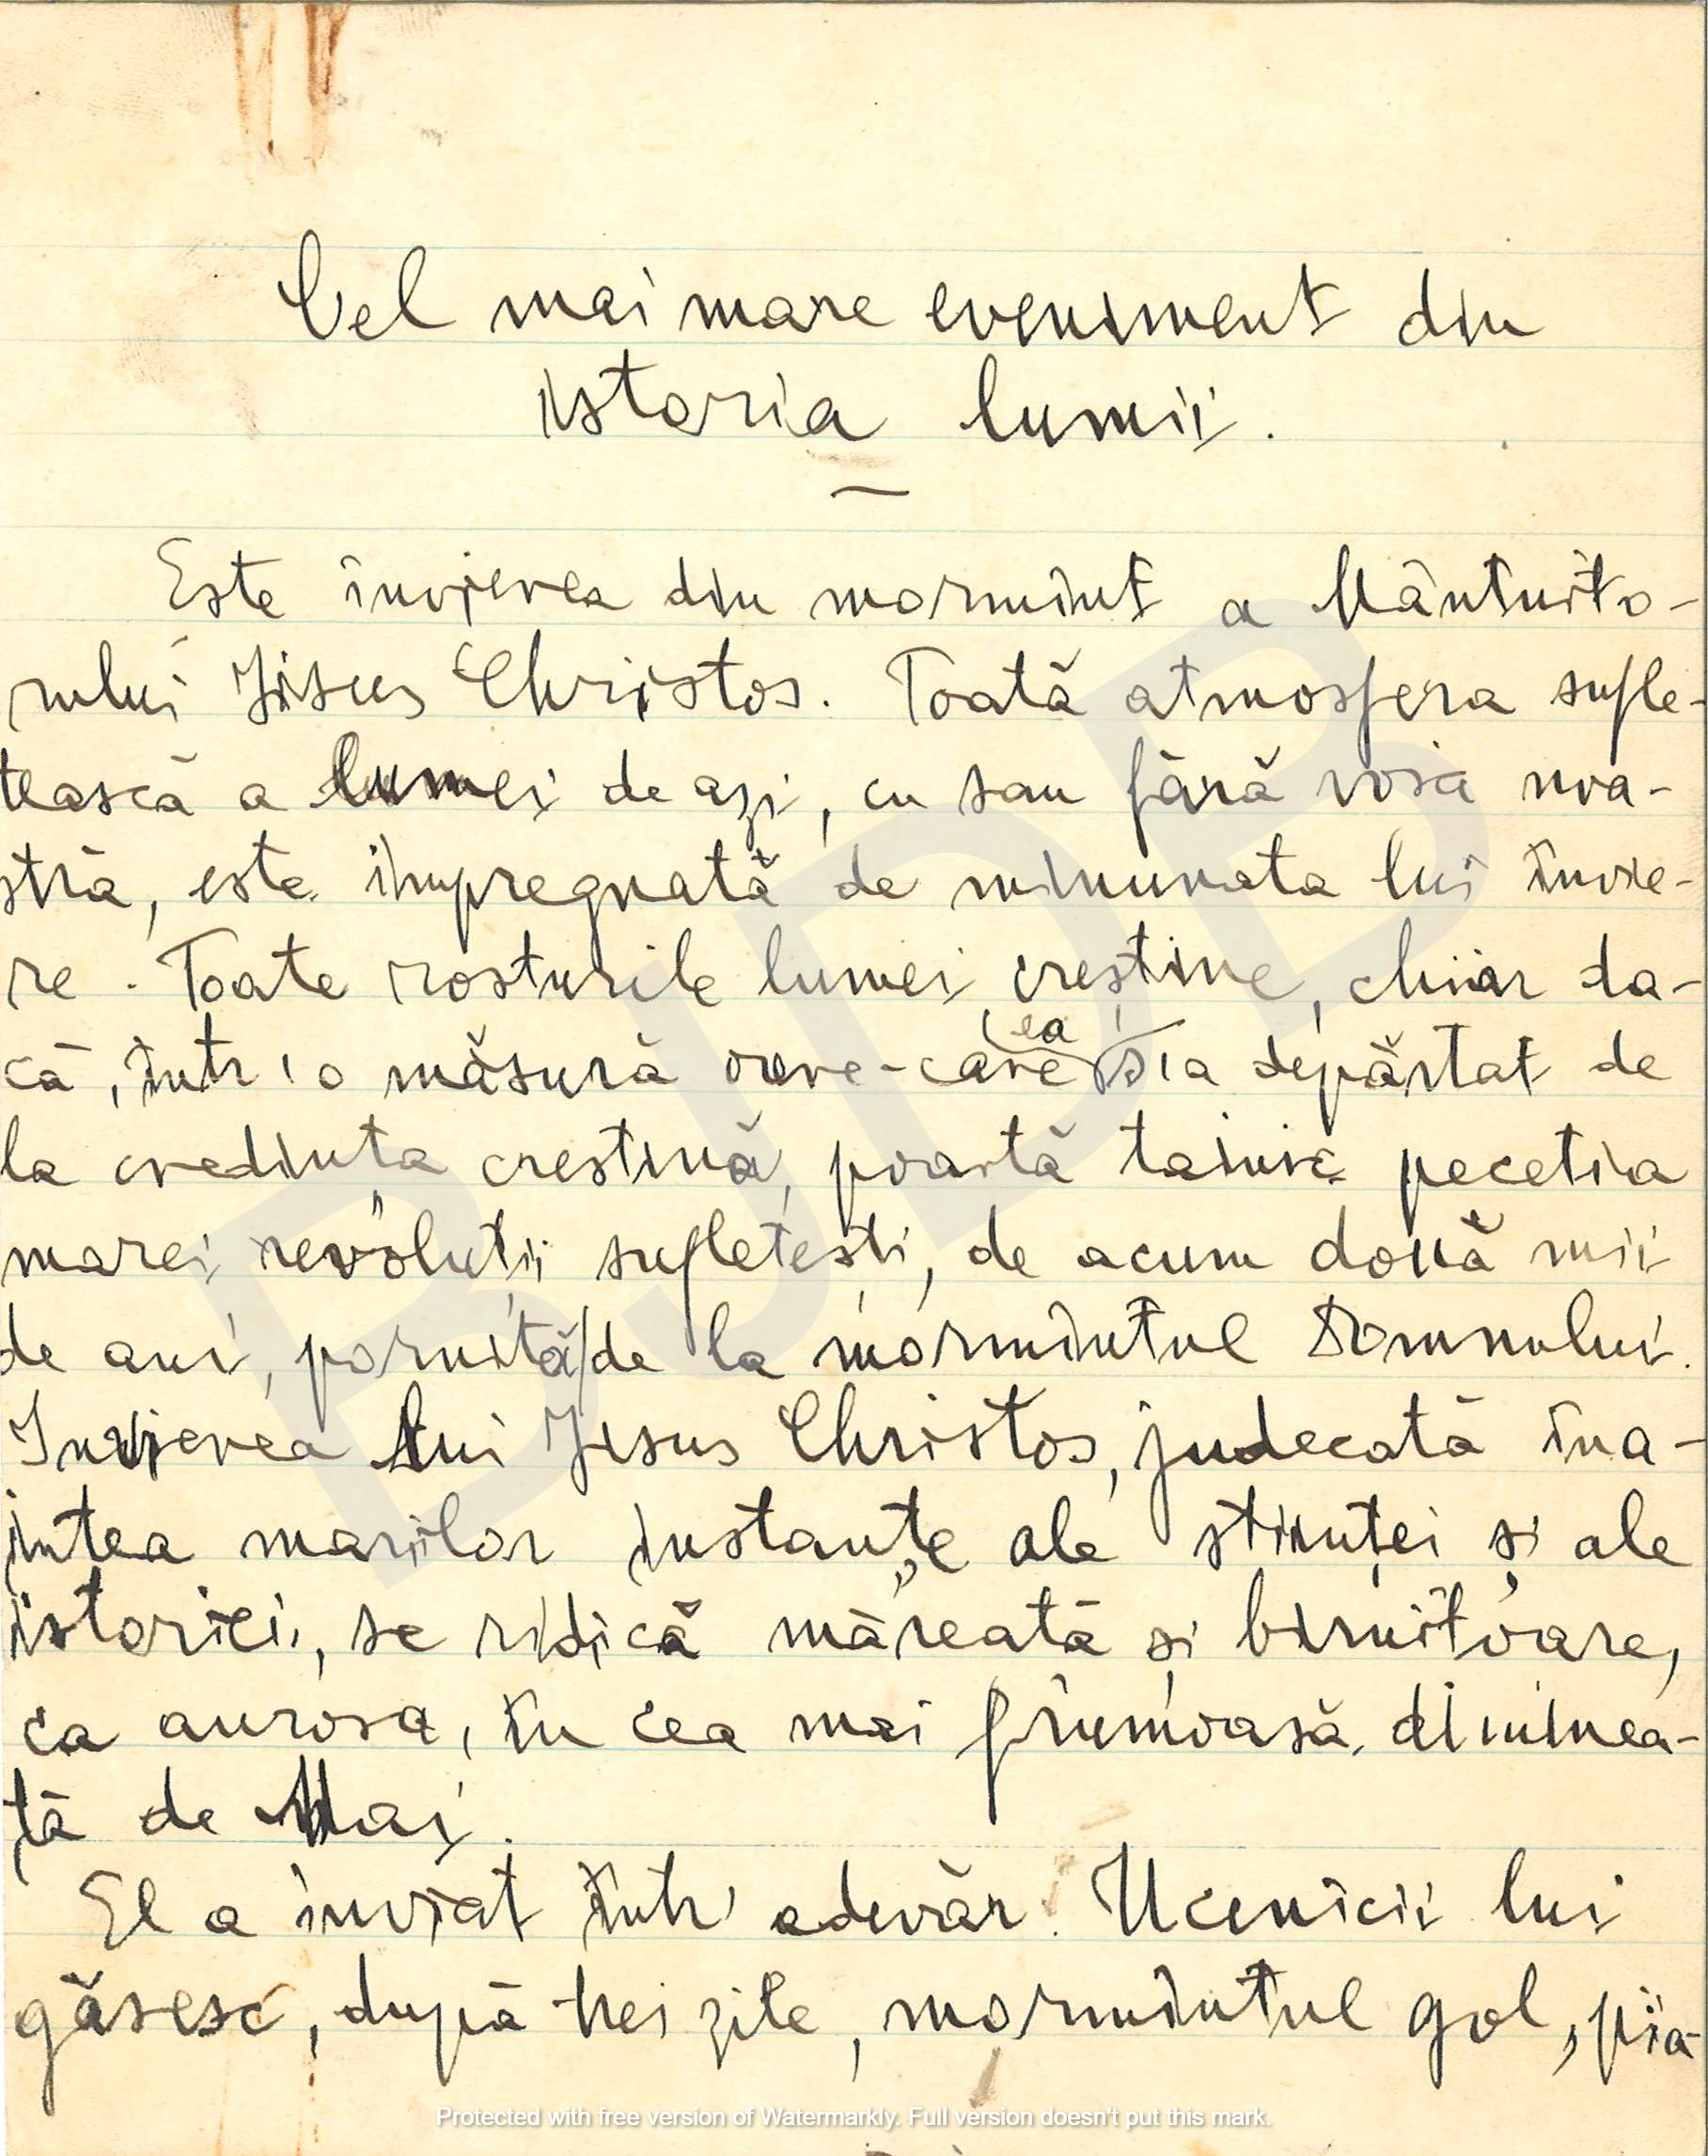 Cel mai mare eveniment din
istoria lumii.
—
Este învierea din mormînt a Mântuito-
rului Iisus Christos. Toată atmosfera sufle-
tească a lumei de azi, cu sau fără voia noa-
stră, este impregnată de minunata lui învie-
re. Toate rosturile lumei creștine, chiar da-
ea
că, într'o măsură oare-care s'a depărtat de
la credința creștină, poartă tainic pecetia
marei revoluții sufletești, de acum două mii
de ani, pornită/de la mormîntul Domnului.
Invierea lui Iesus Christos, judecată îna-
intea marilor instanțe ale stiinței și ale
istoriei, se ridică măreată și biruitoare,
ca aurora, în cea mai frumoasă diminea-
ță de Mai.
El a înviat într'adevăr. Ucenicii lui
găsesc, după trei zile, mormîntul gol, pia-
BJDB
Protected with free version of Watermarkly. Full version doesn't put this mark.